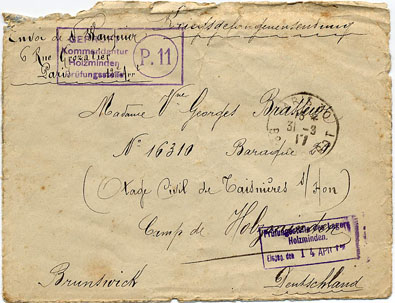 Kriegsgefangenensendung
Envoi de
6 Rue Crozatier
Paris
Kommandantur
Holzminden
Prüfungsstelle
P. 11
Madame Vve Georges
31 - 3
17
N° 16310 Baraque
(Otage Civil de Taisnières s/Hon)
Camp de Holzminden
Prüfungsstelle des Lagers
Holzminden.
Eingeg. den 14 APR
Brunswick Deutschland